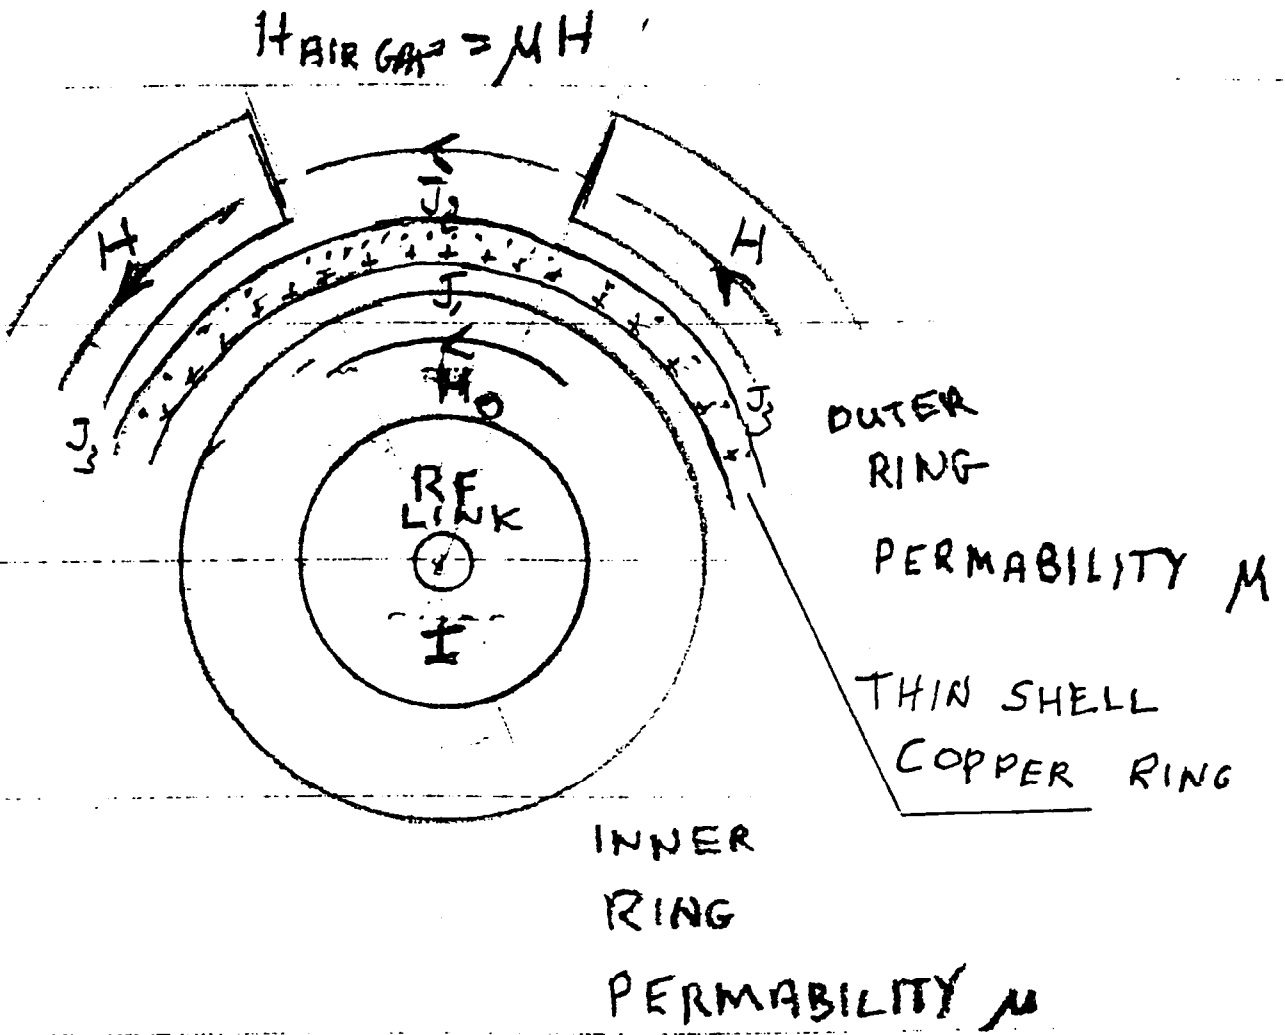 H AIR GAP = μH
J₂
H
H
J₁
H₀
J₃
J₃
OUTER
RING
PERMABILITY μ
RF
LINK
I
THIN SHELL
COPPER RING
INNER
RING
PERMABILITY μ